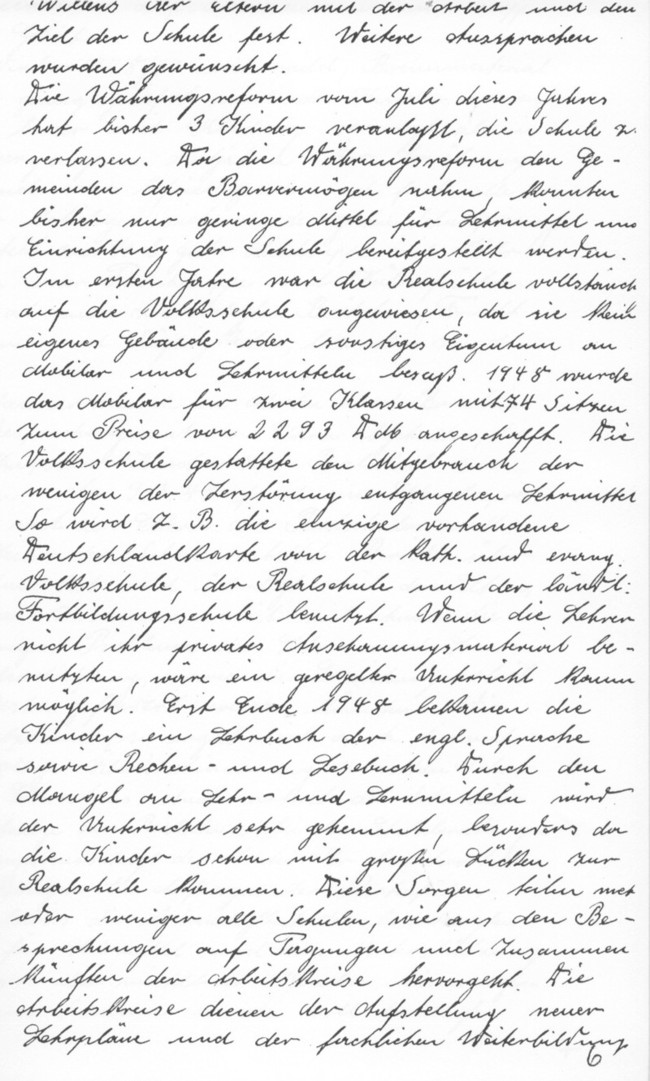 Willens der Eltern mit der Arbeit und den
Ziel der Schule fest. Weitere Aussprachen
wurden gewünscht.
Die Währungsreform vom Juli dieses Jahres
hat bisher 3 Kinder veranlaßt, die Schule z.
verlassen. Da die Währungsreform den Ge-
meinden das Barvermögen nahm, konnten
bisher nur geringe Mittel für Lehrmittel und
Einrichtung der Schule bereitgestellt werden.
Im ersten Jahre war die Realschule vollständ
auf die Volksschule angewiesen, da sie kein
eigenes Gebäude oder sonstiges Eigentum an
Mobilar und Lehrmitteln besaß. 1948 wurde
das Mobilar für zwei Klassen mit 74 Sitzen
zum Preise von 2293 DM angeschafft. Die
Volksschule gestattete den Mitgebrauch der
wenigen der Zerstörung entgangenen Lehrmittel
So wird z. B. die einzige vorhandene
Deutschlandkarte von der kath. und evang.
Volksschule, der Realschule und der ländl.
Fortbildungsschule benutzt. Wenn die Lehrer
nicht ihr privates Anschauungsmaterial be-
nutzten, wäre ein geregelter Unterricht kaum
möglich. Erst Ende 1948 bekamen die
Kinder ein Lehrbuch der engl. Sprache
sowie Rechen- und Lesebuch. Durch den
Mangel an Lehr- und Lernmitteln wird
der Unterricht sehr gehemmt, besonders da
die Kinder schon mit großen Lücken zur
Realschule kommen. Diese Sorgen teilen meh
oder weniger alle Schulen, wie aus den Be-
sprechungen auf Tagungen und Zusammen
künften der Arbeitskreise hervorgeht. Die
Arbeitskreise dienen der Aufstellung neuer
Lehrpläne und der fachlichen Weiterbildung